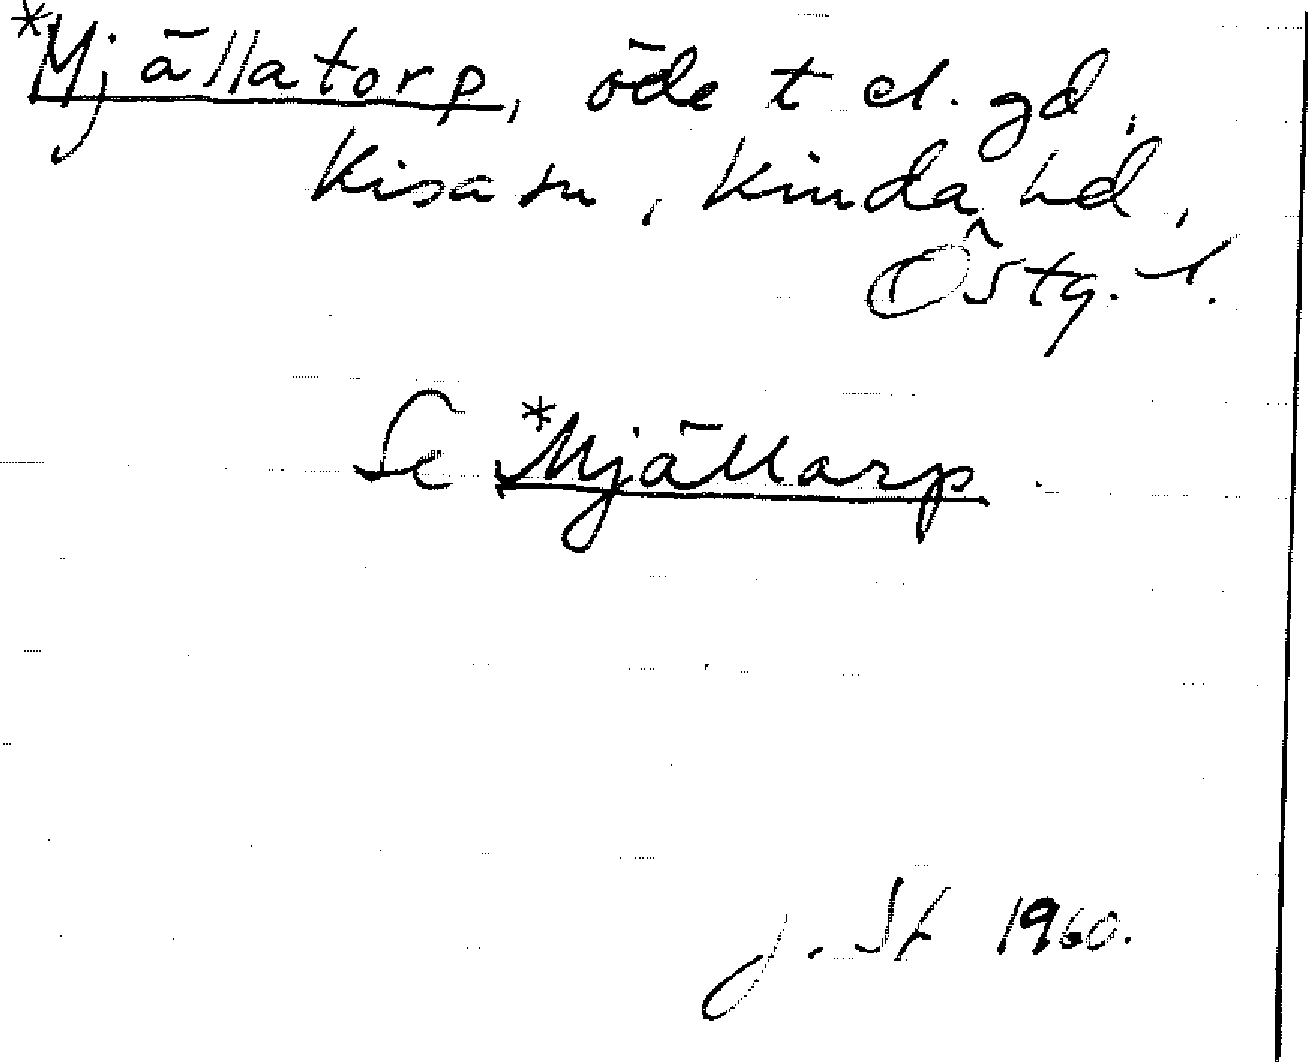 *Mjällatorp, öde t el. gd,
Kisa sn, Kinda hd,
Östg. l.
Se *Mjällarp
J. St 1960.